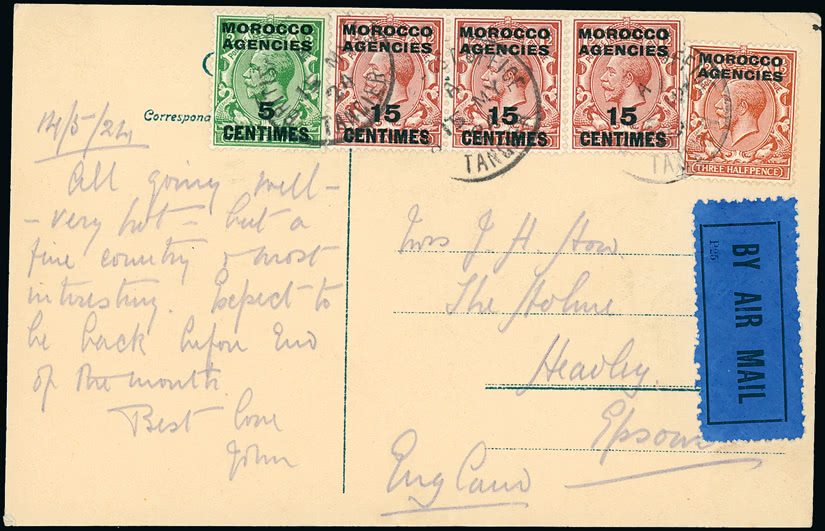 MOROCCO AGENCIES
5 CENTIMES
MOROCCO AGENCIES
15 CENTIMES
MOROCCO AGENCIES
15 CENTIMES
MOROCCO AGENCIES
15 CENTIMES
MOROCCO AGENCIES
THREE HALFPENCE
TANGIER
Corresponda
14/5/24
All going well -
- very hot - but a
fine country & most
interesting. Expect to
be back before End
of the month.
Best love
John
BY AIR MAIL
P.25
Miss J. H. How.
The Holme
Headley.
Epsom
England